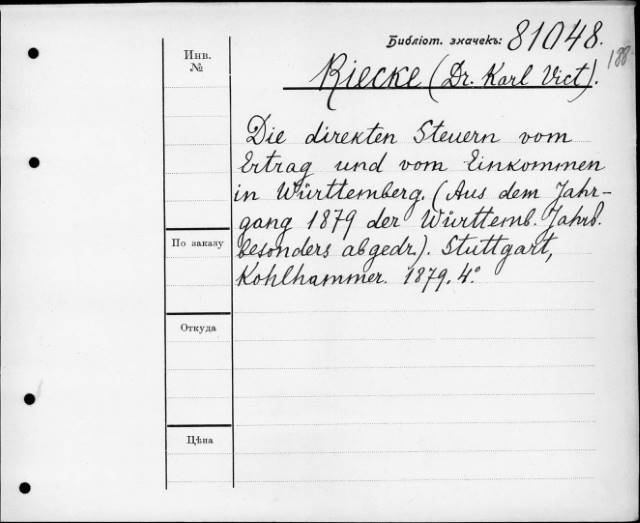 Библіот. значекъ: 81048.
188
Инв.
№
Riecke (Dr. Karl Vict).
Die direkten Steuern vom
Ertrag und vom Einkommen
in Württemberg. (Aus dem Jahr-
gang 1879 der Württemb. Jahrb.
besonders abgedr.). Stuttgart,
Kohlhammer. 1879. 4°.
По заказу
Откуда
Цѣна